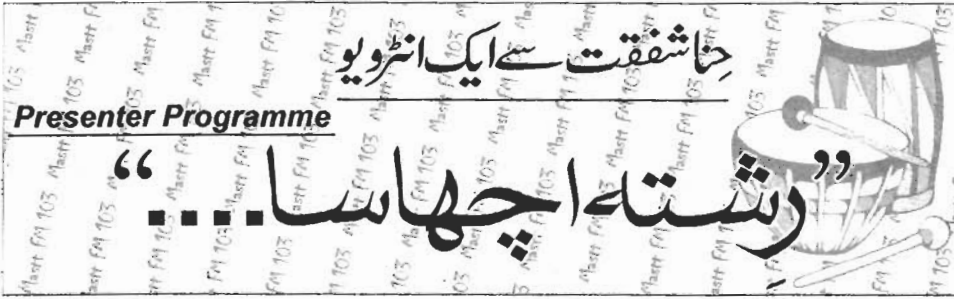 حِنا شفقت سے ایک انٹرویو
Presenter Programme
”رِشتہ اچھا سا....“
Mastt FM 103